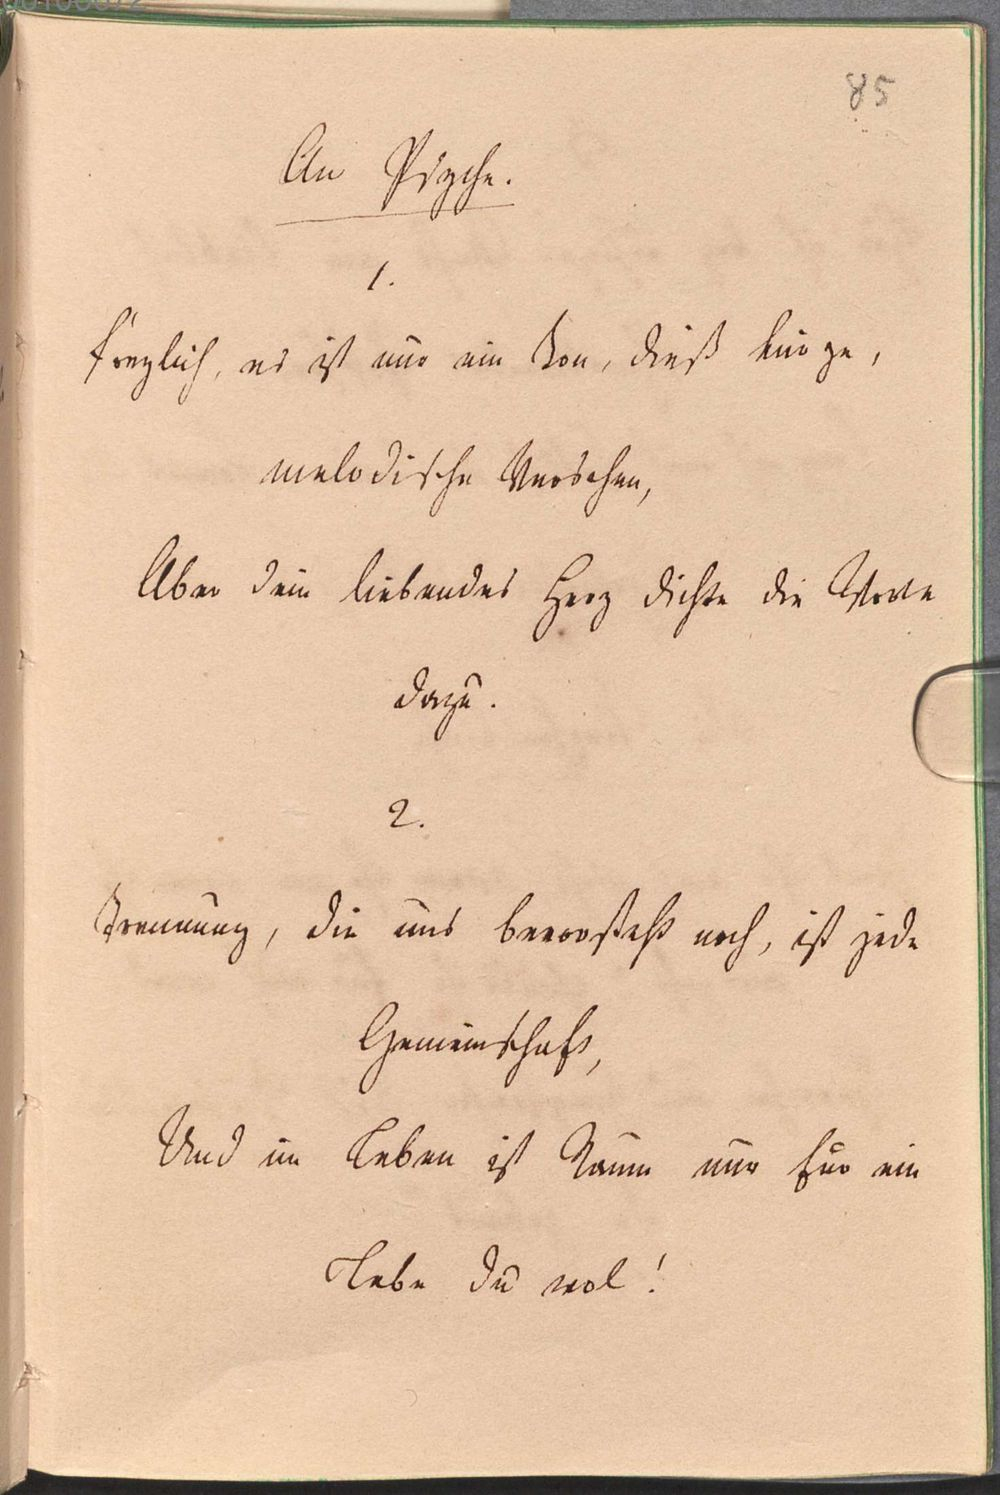 85
An Psyche.
1.
Freylich, es ist nur ein Ton, dieß kurze,
melodische Verschen,
Aber dein liebendes Herz dichte die Worte
dazu.
2.
Trennung, die uns bevorsteht noch, ist jede
Gemeinschaft,
Und im Leben ist Raum nur für ein
Lebe du wol!